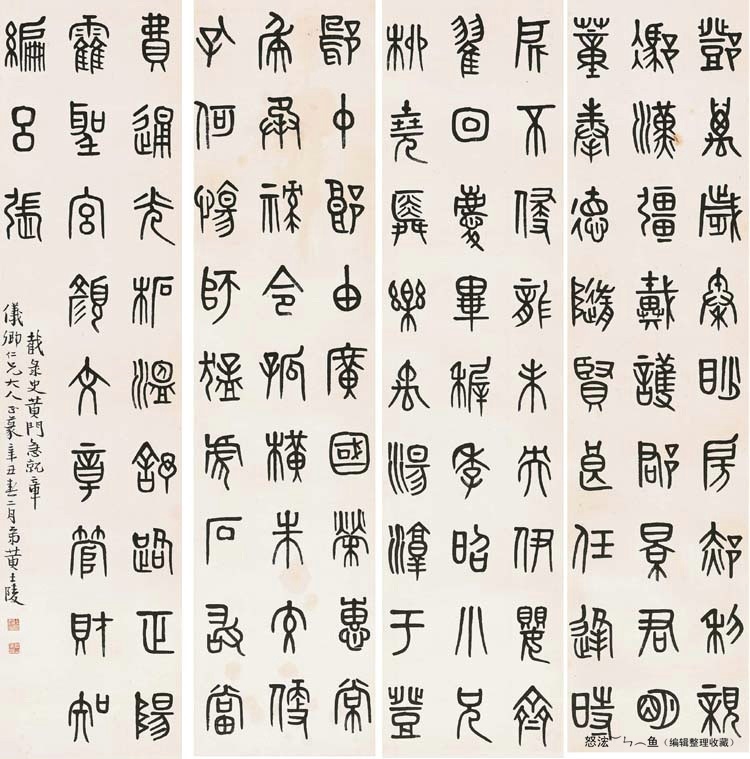 鄧萬歲秦眇房郝利親
馮漢彊戴護郡景君明
董奉德隨賢良任逢時
不侵龍未央伊嬰齊
翟回慶畢稚季昭小兄
柳堯舜樂禹湯淳于登
中郎由廣國榮惠常
烏承祿令狐橫朱交便
孔何傷師猛虎石敢當
費通光柘溫舒路正陽
霍聖宮顏文章管財知
編呂張
截彔史黃門急就章
儀卿仁兄大人正篆辛丑春二月弟黃士陵
（编辑整理收藏）